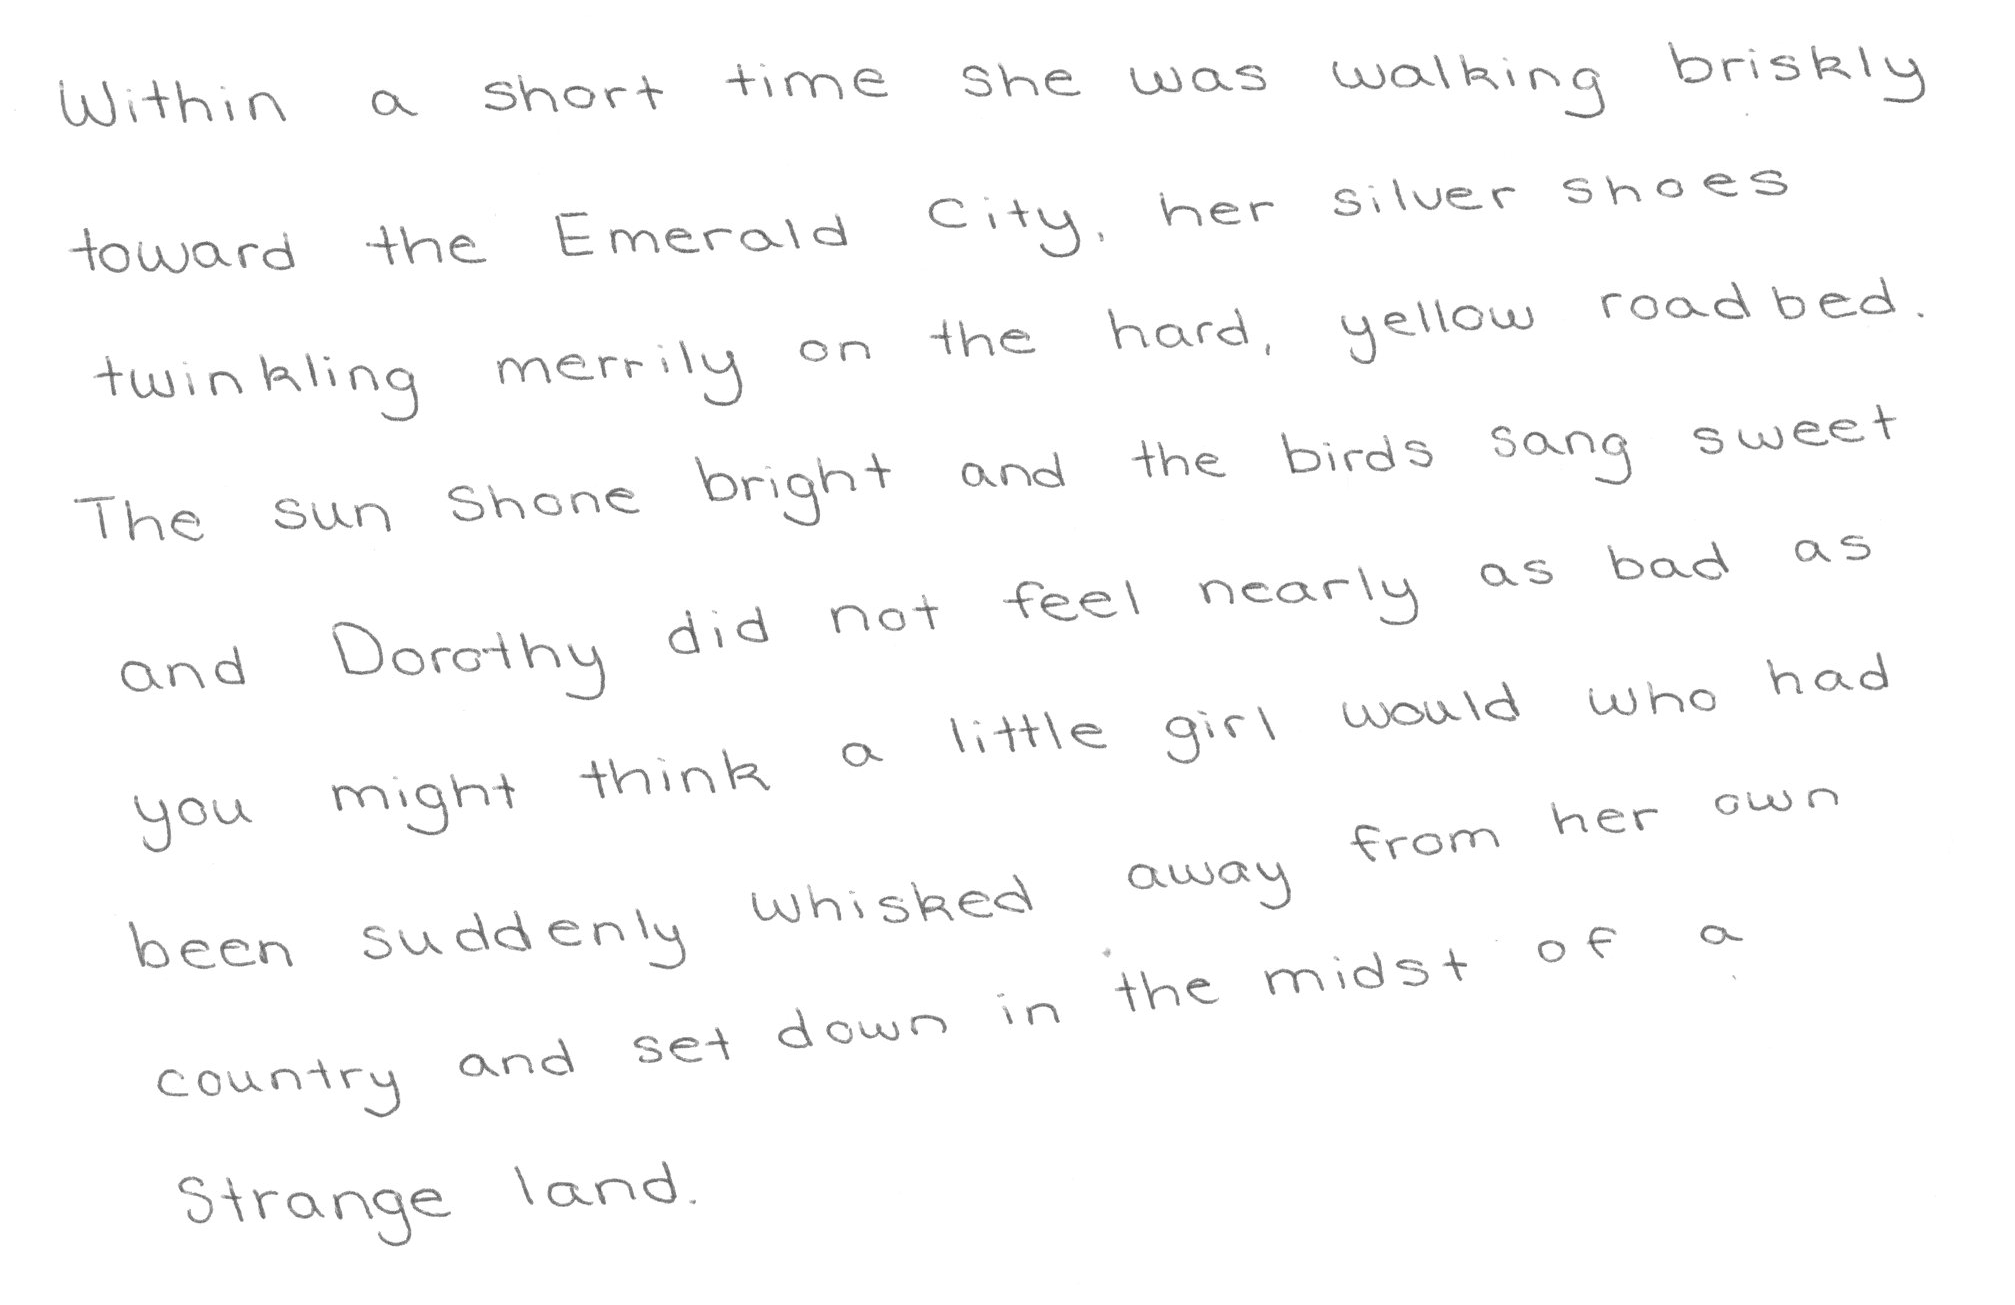 Within a short time she was walking briskly
toward the Emerald City, her silver shoes
twinkling merrily on the hard, yellow roadbed.
The sun shone bright and the birds sang sweet
and Dorothy did not feel nearly as bad as
you might think a little girl would who had
been suddenly whisked away from her own
country and set down in the midst of a
strange land.